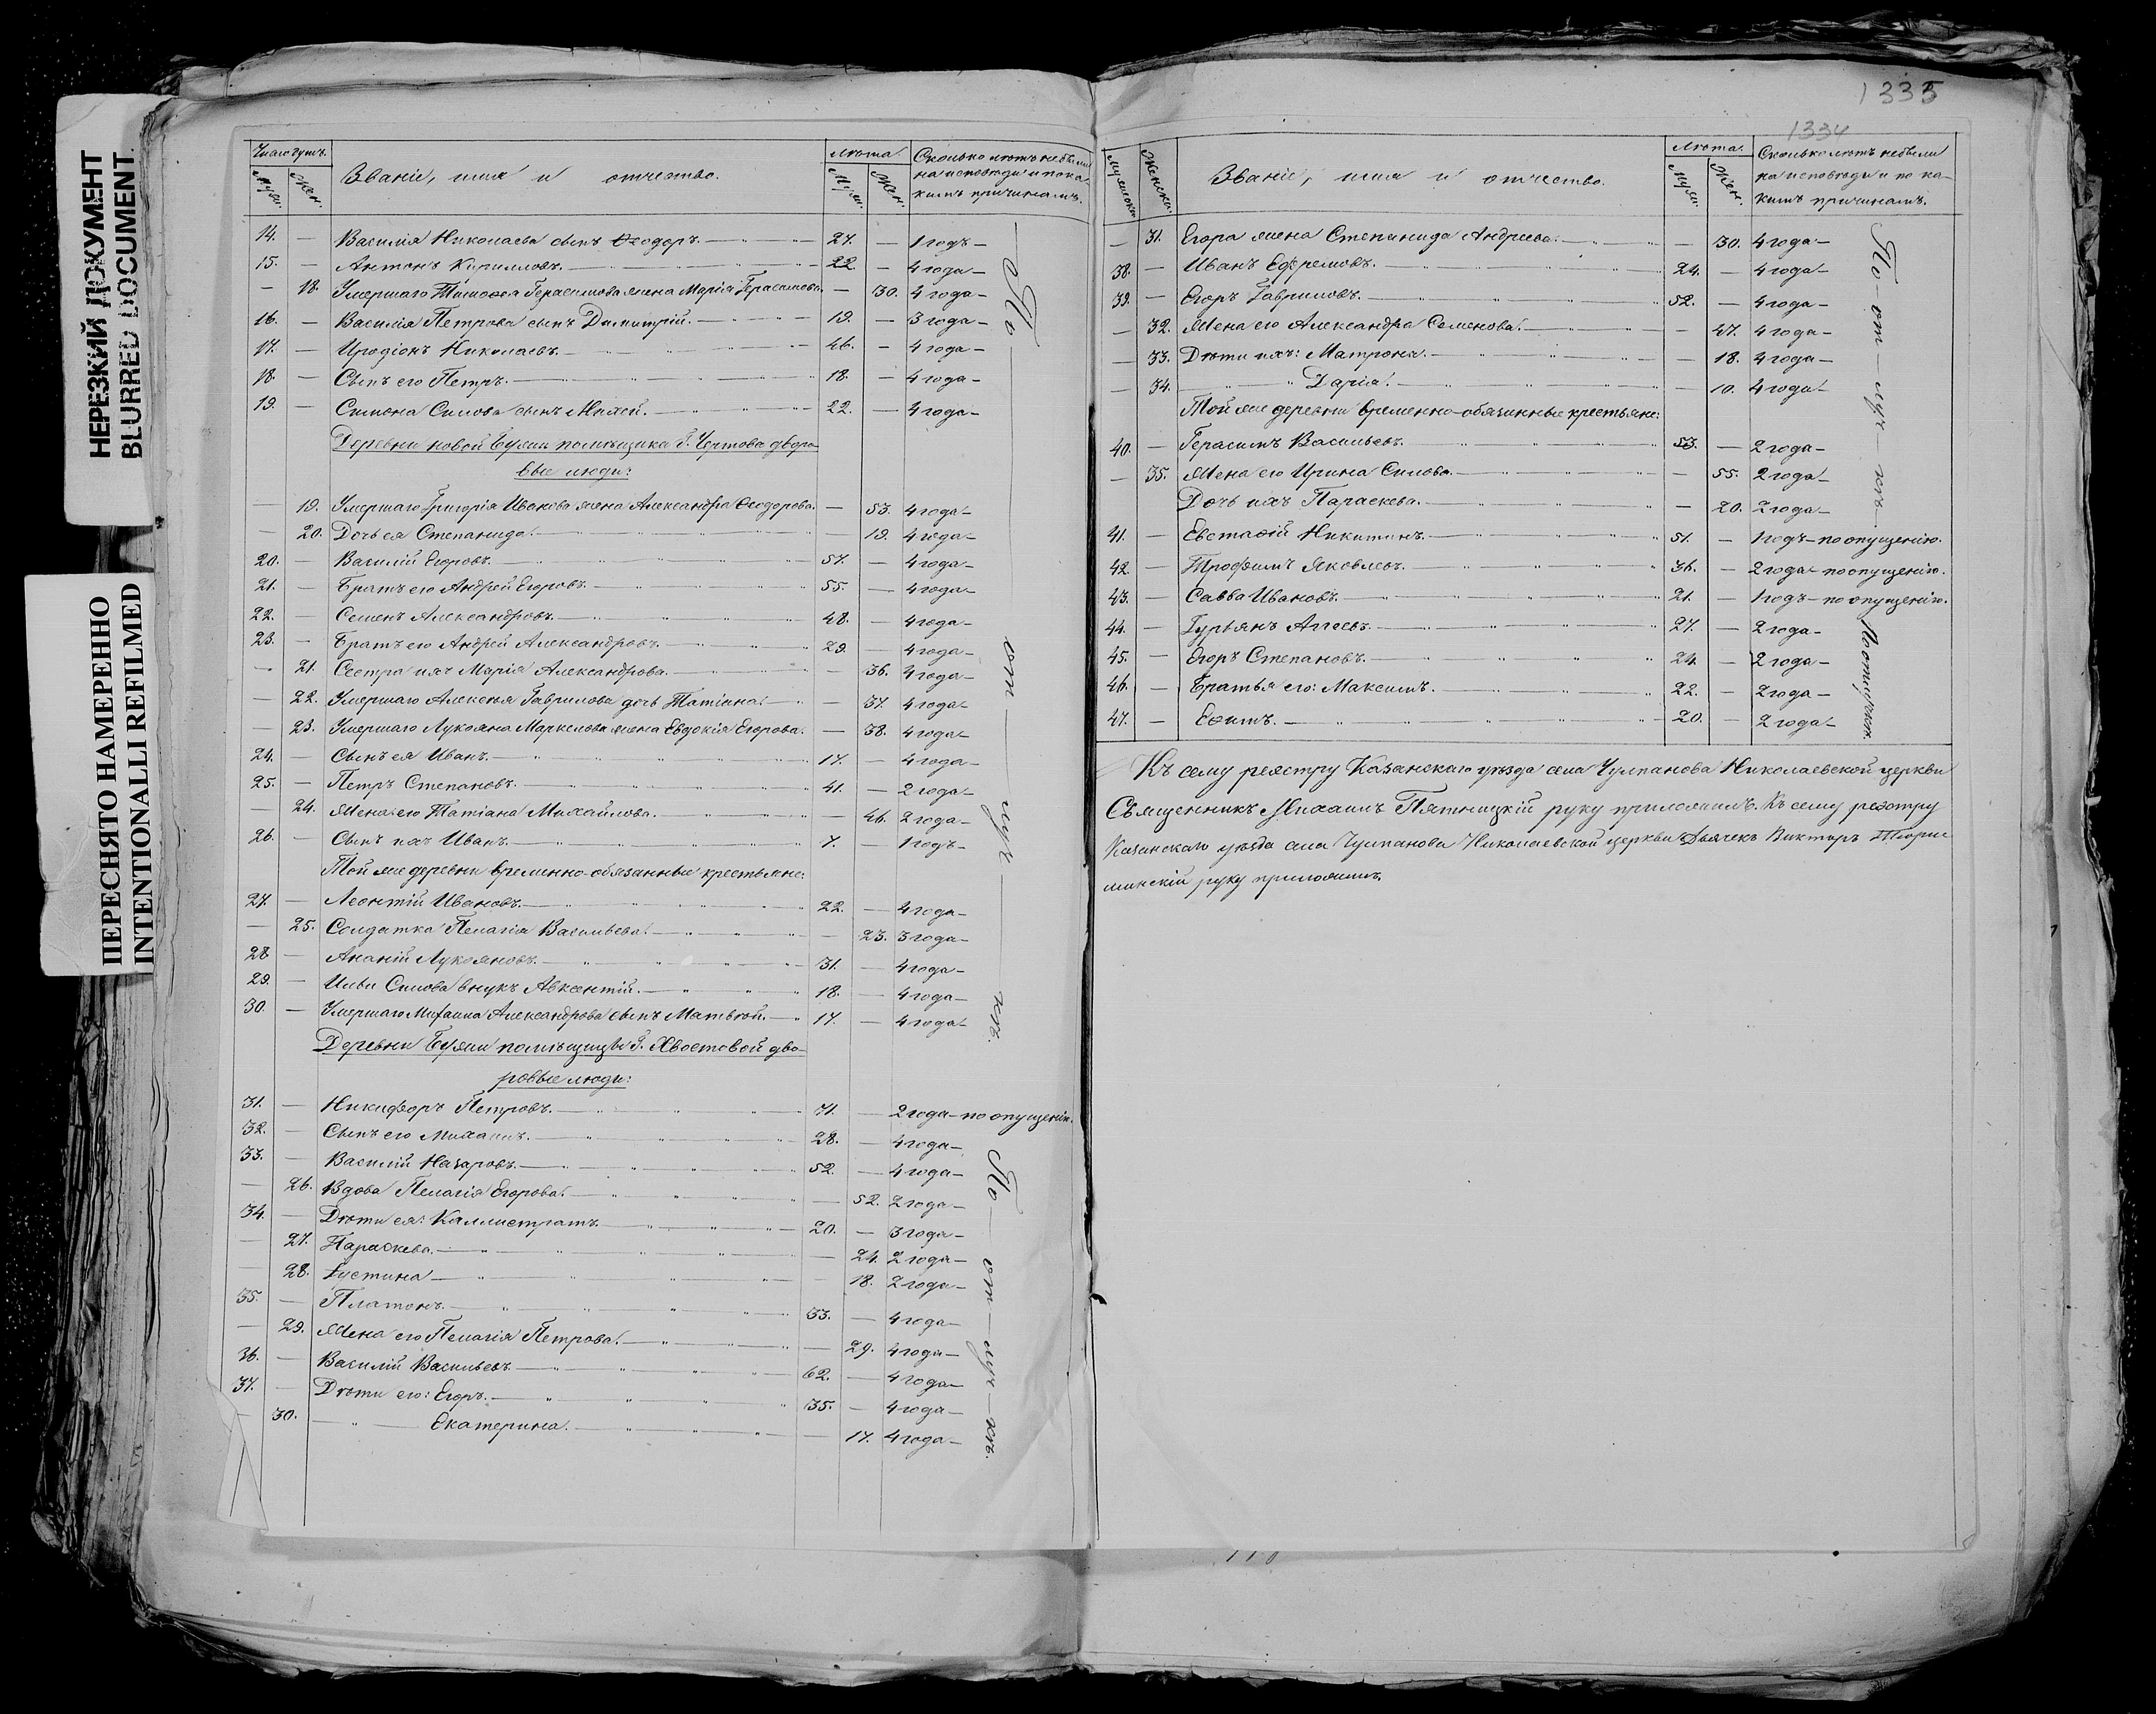 НЕРЕЗКИЙ ДОКУМЕНТ
BLURRED DOCUMENT
ПЕРЕСНЯТО НАМЕРЕННО
INTENTIONALLI REFILMED
Число душъ. Званіе, имя и отчество. Лѣта. Сколько лѣтъ небыли
Муж. Жен. Муж. Жен. на исповѣди и по ка-
кимъ причинамъ.
14. — Василія Николаева сынъ Ѳеодоръ. — 27. — 1 годъ —
15. — Антонъ Кириловъ. — 22. — 4 года —
— 18. Умершаго Тимоѳея Герасимова жена Марія Герасимова. — 30. 4 года —
16. — Василія Петрова сынъ Димитрій. — 19. — 3 года —
17. — Иродіонъ Николаевъ. — 46. — 4 года —
18. — Сынъ его Петръ. — 18. — 4 года —
19. — Симона Силова сынъ Михей. — 22. — 4 года —
Деревни новой Бужи помѣщика Г. Чертова дворо-
вые люди:
— 19. Умершаго Григорія Иванова жена Александра Ѳеодорова. — 53. 4 года —
— 20. Дочь ея Степанида. — 19. 4 года —
20. — Василій Егоровъ. — 57. — 4 года —
21. — Братъ его Андрей Егоровъ. — 55. — 4 года —
22. — Семенъ Александровъ. — 48. — 4 года —
23. — Братъ его Андрей Александровъ. — 29. — 4 года —
— 21. Сестра ихъ Марія Александрова. — 36. 4 года —
— 22. Умершаго Алексѣя Гаврилова дочь Татіана. — 37. 4 года —
— 23. Умершаго Лукояна Маркелова жена Евдокія Егорова. — 38. 4 года —
24. — Сынъ ея Иванъ. — 17. — 4 года —
25. — Петръ Степановъ. — 41. — 2 года —
— 24. Жена его Татіана Михайлова. — 46. 2 года —
26. — Сынъ ихъ Иванъ. — 7. — 1 годъ —
Той же деревни временно-обязанные крестьяне:
27. — Леонтій Ивановъ. — 22. — 4 года —
— 25. Солдатка Пелагія Васильева. — 23. 3 года —
28 — Ананій Лукояновъ. — 31. — 4 года —
29. — Силова внукъ Авксентій. — 18. — 4 года —
30. — Умершаго Михаила Александрова сынъ Матвѣй. — 17. — 4 года —
Деревни Бужи помѣщицы Г. Хвостовой дво-
ровые люди:
31. — Никифоръ Петровъ. — 71. — 2 года — по опущенію.
32. — Сынъ его Михаилъ. — 28. — 4 года —
33. — Василій Назаровъ. — 52. — 4 года —
— 26. Вдова Пелагія Егорова. — 52. 2 года —
34. — Дѣти ея: Каллистратъ. — 20. — 3 года —
— 27. Параскева. — 24. 2 года —
— 28. Іустина — 18. 2 года —
35. — Платонъ. — 33. — 4 года —
— 29. Жена его Пелагія Петрова. — 29. 4 года —
36. — Василій Васильевъ. — 62. — 4 года —
37. — Дѣти его: Егоръ. — 35. — 4 года —
— 30. Екатерина. — 17. 4 года —
По — от — луч — кѣ.
По — от — луч — кѣ.
1335
1334
Мужеска. Женска. Званіе, имя и отчество. Лѣта. Сколько лѣтъ небыли
Муж. Жен. на исповѣди и по ка-
кимъ причинамъ.
— 31. Егора жена Степанида Андреева. — 30. 4 года —
38. — Иванъ Ефремовъ. — 24. — 4 года —
39. — Егоръ Гавриловъ. — 52. — 4 года —
— 32. Жена его Александра Семенова. — 47. 4 года —
— 33. Дѣти ихъ: Матрона. — 18. 4 года —
— 34. Дарія. — 10. 4 года —
Той же деревни временно-обязанные крестьяне:
40. — Герасимъ Васильевъ. — 53. — 2 года —
— 35. Жена его Ирина Силова. — 55. 2 года —
Дочь ихъ Параскева. — 20. 2 года —
41. — Евстафій Никитинъ. — 51. — 1 годъ — по опущенію.
42. — Трофимъ Яковлевъ. — 36. — 2 года — по опущенію.
43. — Савва Ивановъ. — 21. — 1 годъ — по опущенію.
44. — Гурьянъ Агеевъ. — 27. — 2 года —
45. — Егоръ Степановъ. — 24. — 2 года —
46. — Братья его: Максимъ. — 22. — 2 года —
47. — Еѳимъ. — 20. — 2 года —
По от — луч — кѣ
По отлучкѣ.
Къ сему реэстру Казанскаго уѣзда села Чулпанова Николаевской церкви
Священникъ Михаилъ Пятницкій руку приложилъ. Къ сему реэстру
Казанскаго уѣзда села Чулпанова Николаевской церкви Дьячекъ Викторъ
минскій руку приложилъ.